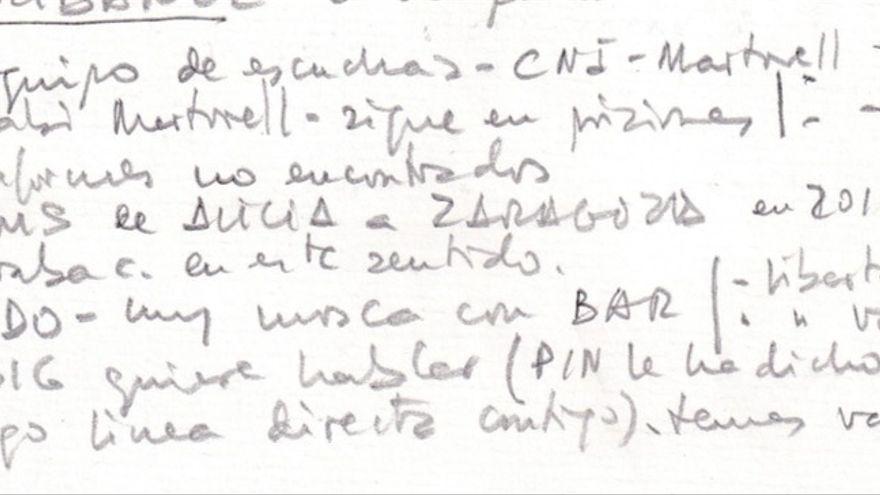 equipo de escuchas - CNI - Martorell -
Martorell - sigue en prisiones | : -
informes no encontrados
SMS de ALICIA a ZARAGOZA en 201
en este sentido.
DO - muy mosca con BAR | - Liberta
quiere hablar (PIN le ha dicho
linea directa contigo). temas va